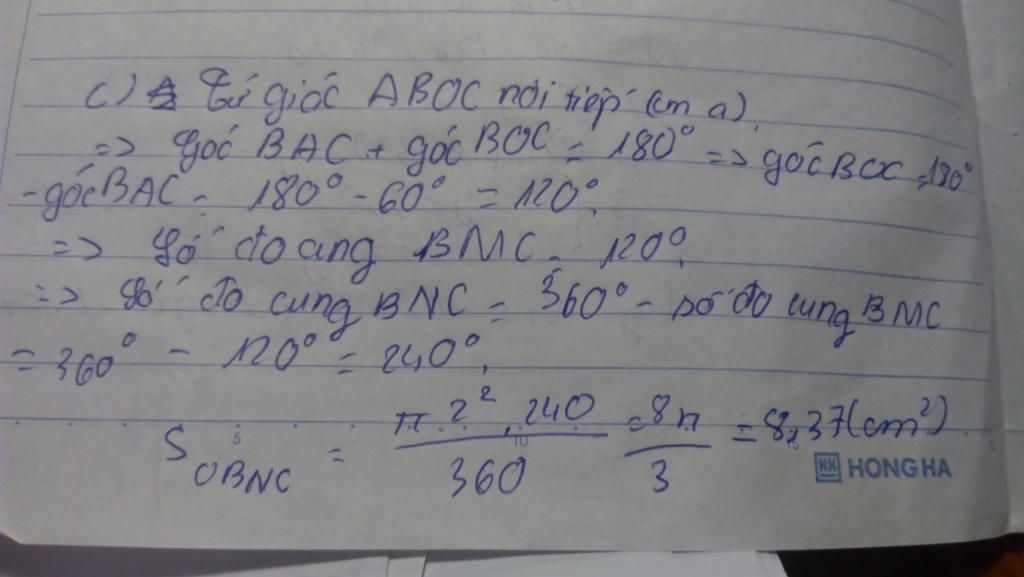 c) Tứ giác ABOC nội tiếp (cm a)
=> góc BAC + góc BOC = 180° => góc BOC = 180°
- góc BAC = 180° - 60° = 120°.
=> Số đo cung BMC = 120°.
=> Số đo cung BNC = 360° - số đo cung BMC
= 360° - 120° = 240°.
S OBNC = π.2².240/360 = 8π/3 = 8,37 (cm²)
HONG HA